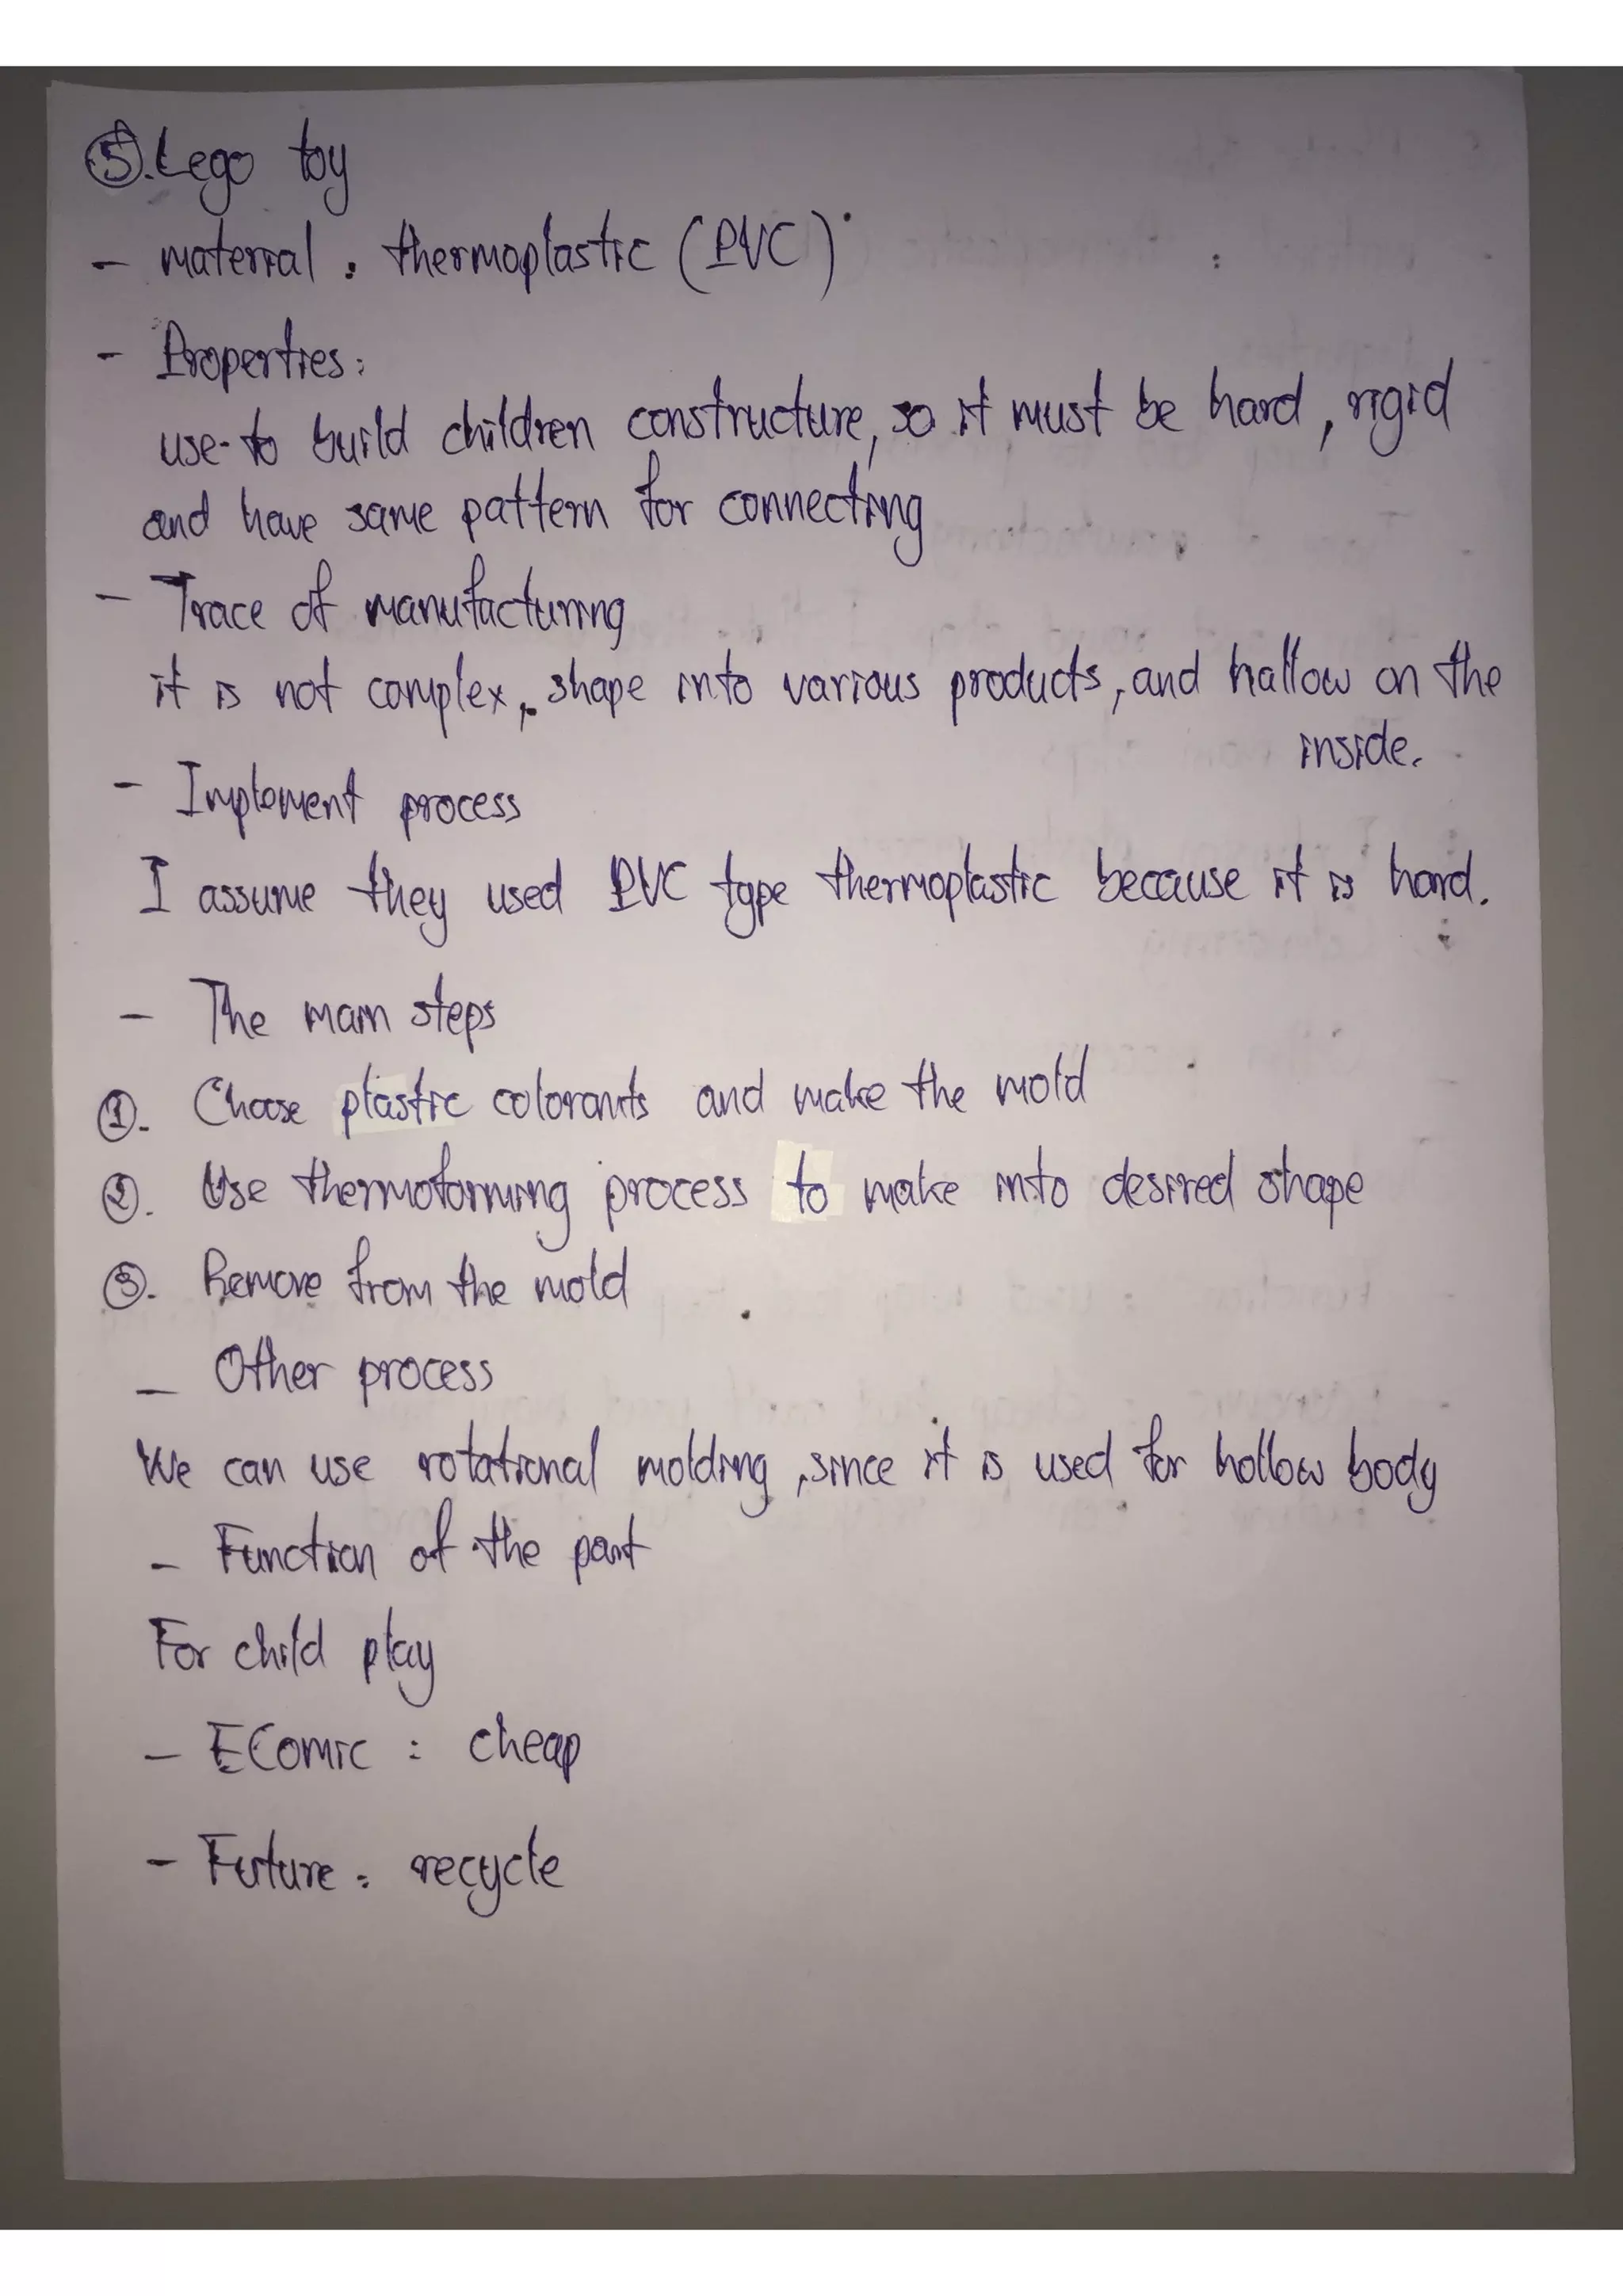 ⑤. Lego toy
- material : thermoplastic (PVC)
- Properties :
use to build children constructure, so it must be hard, rigid
and have same pattern for connecting
- Trace of manufacturing
it is not complex, shape into various products, and hallow on the
inside.
- Implement process
I assume they used PVC type thermoplastic because it is hard.
- The main steps
①. Choose plastic colorants and make the mold
②. Use thermoforming process to make into desired shape
③. Remove from the mold
- Other process
We can use rotational molding, since it is used for hollow body
- Function of the part
For child play
- EComic : cheap
- Future : recycle